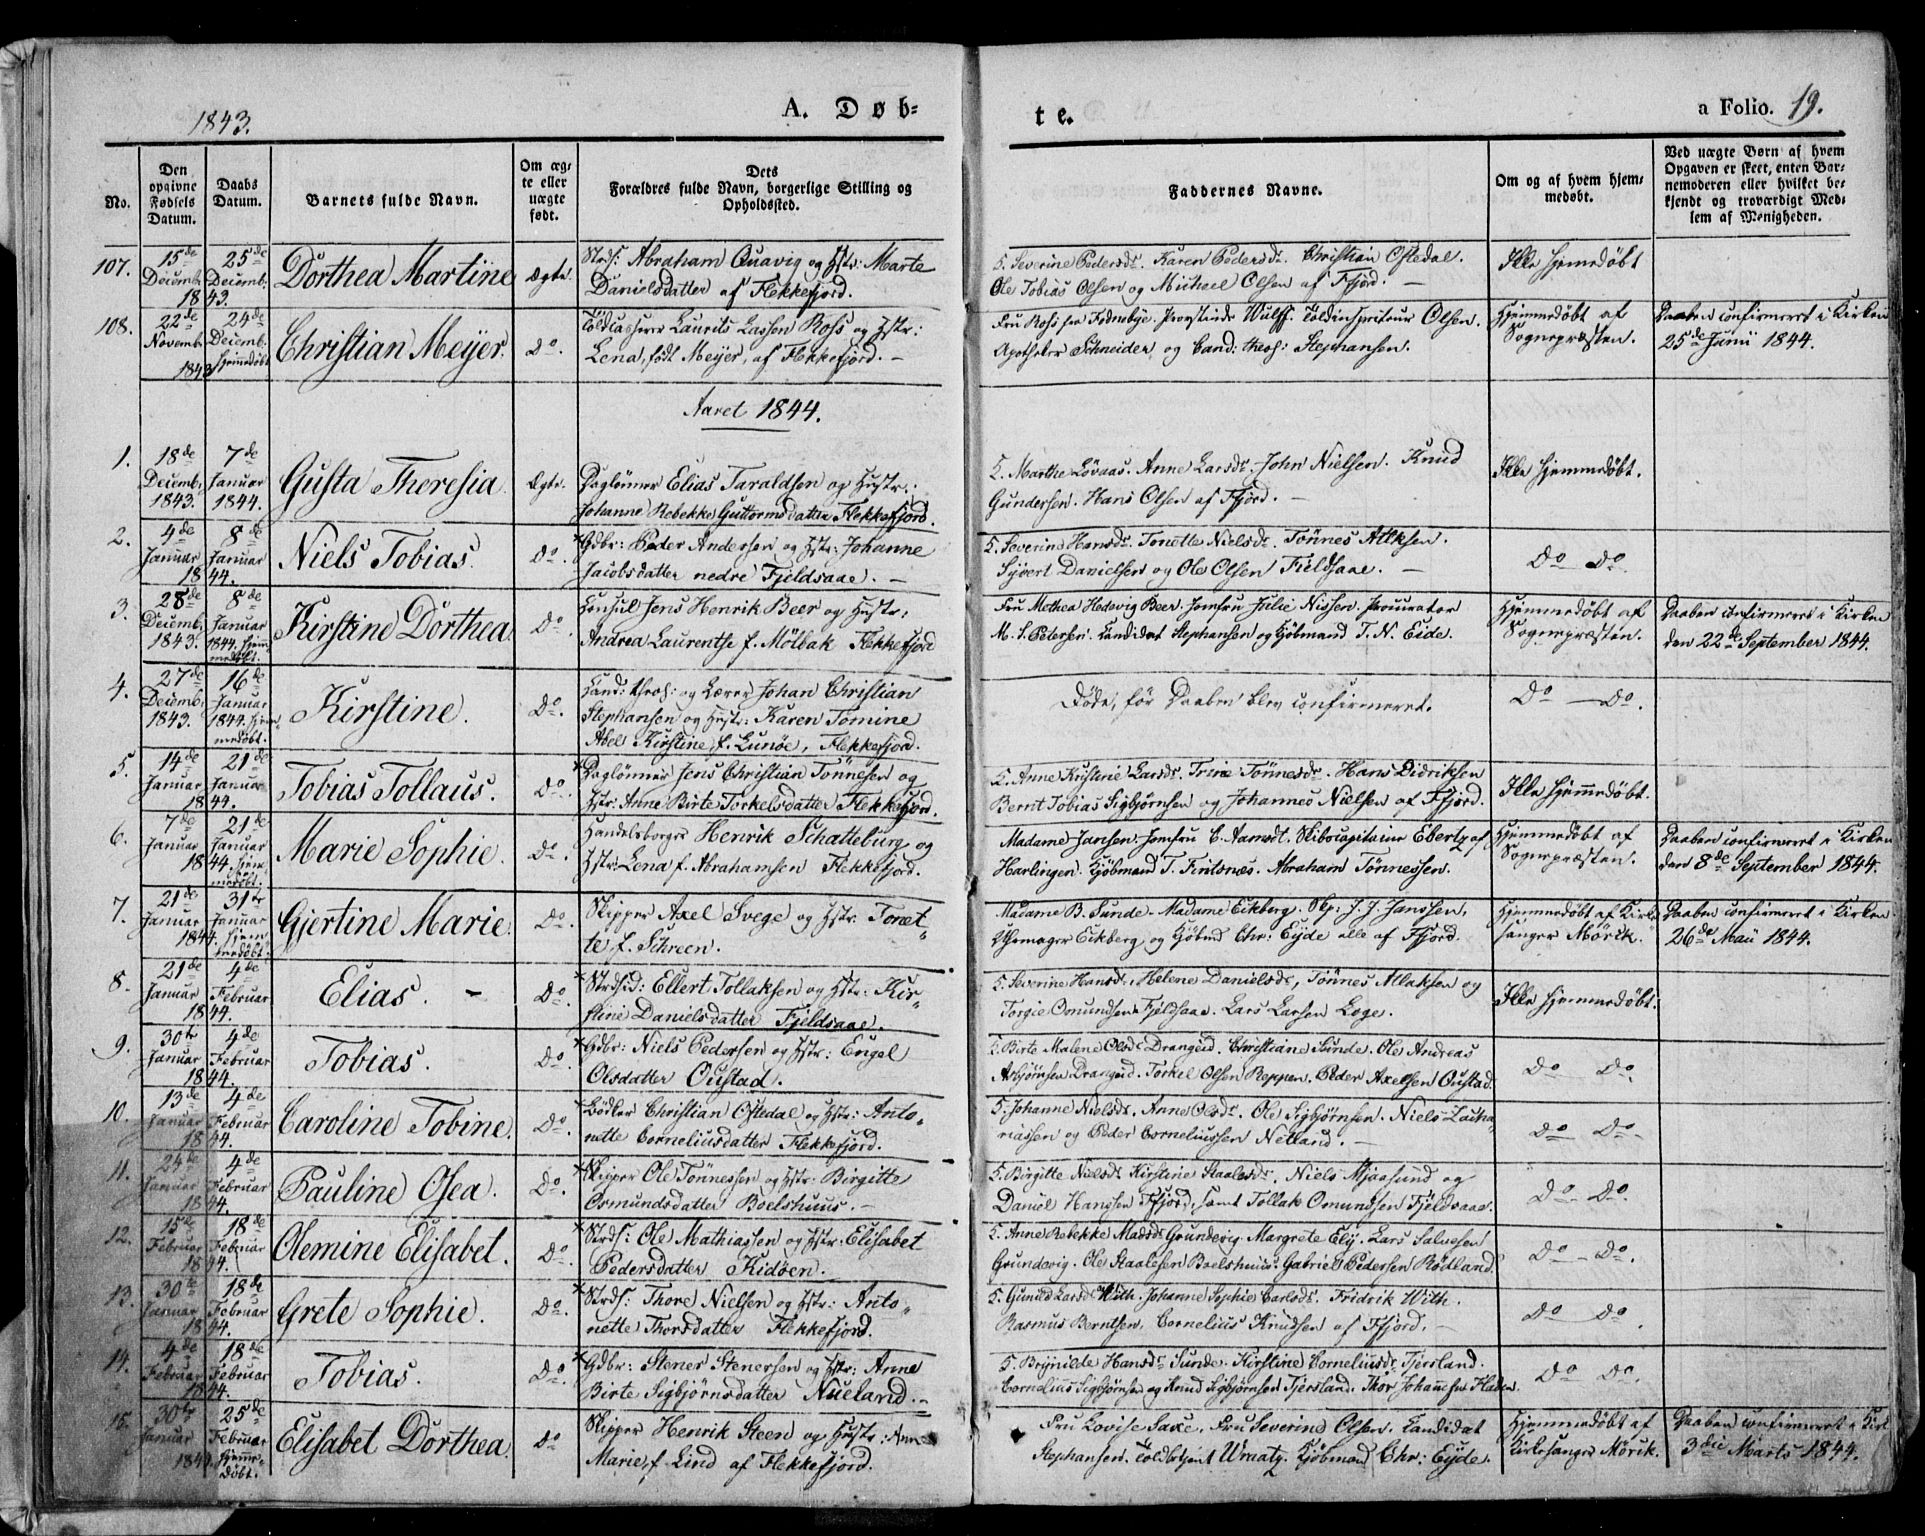 1843.
A. Døb-
te.
a Folio. 19.
No.
Den opgivne Fødsels Datum.
Daabs Datum.
Barnets fulde Navn.
Om ægte eller uægte født.
Dets Forældres fulde Navn, borgerlige Stilling og Opholdssted.
Faddernes Navne.
Om og af hvem hjemmedøbt.
Ved uægte Børn af hvem Opgaven er skeet, enten Barnemoderen eller hvilket bekjendt og troværdigt Medlem af Menigheden.
107. 15de Decemb. 1843. 25de Decemb. Dorthea Martine Ægte.
Strds: Abraham Quavig og Hstr: Marte
Danielsdatter af Flekkefjord.
F. Severine Pedersdr. Karen Pedersdr. Christian Oftedal.
Ole Tobias Olsen og Michael Olsen af Ffjord. —
Ikke hjemedøbt
108. 22de Novemb. 1843 24de Decemb. hjemedøbt Christian Meyer. Do.
Toldcasserer Laurits Lassen Ross og Hstr:
Lena, født Meyer, af Flekkefjord. —
Fru Ross fra Fødnebye. Provstinde Wulff. Toldinspecteur Olsen.
Apotheker Schneider og Cand: theol: Stephansen.
Hjemmedøbt af
Sognepræsten.
Daaben confirmeret i Kirken
25de Junii 1844.
Aaret 1844.
1. 18de Decemb. 1843. 7de Januar 1844. Gusta Theresia. Ægte.
Daglønner Elias Taraldsen og Hustr:
Johanne Rebekka Guttormsdatter Flekkefjord.
F. Marthe Løvaas. Anne Larsdr. John Nielsen. Knud
Gundersen. Hans Olsen af Ffjord. —
Ikke hjemmedøbt.
2. 4de Januar 1844. 8de Januar Niels Tobias. Do.
* Gdbr: Peder Andersen og Hstr: Johanne
Jacobsdatter nedre Fjeldsaae. —
F. Severine Hansdr. Tonette Nielsdr. Tønnes Atlksen.
Sjvert Danielsen og Ole Olsen Fjeldsaae. —
Do Do.
3. 28de Decemb. 1843. 8de Januar 1844. hjemmedøbt. Kirstine Dorthea. Do.
Konsul Jens Henrik Beer og Hustr.
Andrea Laurentse f. Mølbak Flekkefjord
Fru Methea Hedevig Beer. Jomfru Julie Nissen. Procurator
M. S. Petersen. Kandidat Stephansen og Kjøbmand T. N. Eide.
Hjemmedøbt af
Sognepræsten.
Daaben confirmeret i Kirken
den 22de September 1844.
4. 27de Decemb. 1843. 16de Januar 1844. hjemmedøbt. Kirstine. Do.
Kand: theol: og Lærer Johan Christian
Stephansen og Hustr: Karen Tomine
Abel Kirstine f. Lunøe, Flekkefjord.
Døde, før Daaben blev confirmeret.
Do — Do.
5. 14de Januar 1844. 21de Januar Tobias Tollaus. Do.
* Daglønner Jens Christian Tønnesen og
Hstr: Anne Birte Torkelsdatter Flekkefjord.
F. Anne Kistine Larsdr. Trine Tønnesdr. Hans Didriksen
Bernt Tobias Sigbjørnsen og Johannes Nielsen af Ffjord.
Ikke hjemmedøbt.
6. 7de Januar 1844. 21de Januar hjemmedøbt. Marie Sophie. Do.
Handelsborger Henrik Schatteburg og
Hstr: Lena f. Abrahamsen Flekkefjord.
Madame Jansen. Jomfru C. Aamodt. Skibscapitaine Ebertz af
Harlingen. Kjøbmand T. Fintsnes. Abraham Tønnessen.
Hjemmedøbt af
Sognepræsten.
Daaben confirmeret i Kirken
den 8de September 1844.
7. 21de Januar 1844. 31te Januar hjemmedøbt. Gjertine Marie. Do.
Skipper Axel Svege og Hstr: Tonet-
te f. Sitreen.
Madame B. Sunde. Madame Eckberg. Skp: J. J. Janssen.
Uhrmager Eckberg og Kjøbmd Chr: Eyde alle af Ffjord.
Hjemmedøbt af Kirke-
sanger Mørik.
Daaben confirmeret i Kirken
26de Maii 1844.
8. 21de Januar 1844. 4de Februar Elias. — Do.
* Strdsd: Ellert Tollaksen og Hstr: Kir-
stine Danielsdatter Fjeldsaae.
F. Severine Hansdr., Helene Danielsdr., Tønnes Atlaksen og
Torgie Omundsen Fjeldsaae. Lars Larsen Loge.
Ikke hjemmedøbt.
9. 30te Januar 1844. 4de Februar Tobias. Do.
* Gdbr: Niels Pedersen og Hstr: Engel
Olsdatter Oustad.
F. Birte Malene Olsdr. Drangeid. Christiane Sunde. Ole Andreas
Asbjørnsen Drangeid. Torkel Olsen Reppen. Peder Axelsen Oustad.
Do Do.
10. 13de Januar 1844. 4de Februar Caroline Tobine. Do.
* Bødker Christian Oftedal og Hstr: Anto-
nette Corneliusdatter Flekkefjord.
F. Johanne Nielsdr. Anne Olsdr. Ole Sigbjørnsen. Niels Zacha-
riassen og Peder Corneliussen Netland. —
Do Do.
11. 24de Januar 1844. 4de Februar Pauline Osea. Do.
* Skipper Ole Tønnessen og Hstr: Birgitte
Osmundsdatter Boelshuus. —
F. Birgitte Nielsdr. Kirstine Staalesdr. Niels Mjaasund og
Daniel Hanssen Ffjord, samt Tollak Omundsen Fjeldsaae.
Do. Do.
12. 15de Februar 1844. 18de Februar Olemine Elisabet. Do.
* Strds: Ole Mathiassen og Hstr: Elisabet
Pedersdatter Kidøen.
F. Anne Rebekke Madsdr Grundevig. Margrete Ely. Lars Salvesen
Grundevig. Ole Staalesen Boelshuus. Gabriel Pedersen Rødland.
Do — Do.
13. 30te Januar 1844. 18de Februar Grete Sophie. Do.
* Strds: Thore Nielsen og Hstr: Anto-
nette Thorsdatter Flekkefjord.
F. Gunild Larsdr With. Johanne Sophie Carlsdr. Fridrik With.
Rasmus Berntsen. Cornelius Knudsen af Ffjord. —
Do Do.
14. 4de Februar 1844. 18de Februar Tobias. Do.
* Gdbr: Stener Stenersen og Hstr: Anne
Birte Sigbjørnsdatter Nueland. —
F. Brynilde Hansdr Sunde. Kirstine Corneliusdr Tjersland.
Cornelius Sigbjørnsen og Knud Sigbjørnsen Tjersland. Thor Johannesen
Do Do.
15. 30te Januar 1844. 25de Februar hjemmedøbt. Elisabet Dorthea. Do
Skipper Henrik Steen og Hustr: Anne
Marie f. Lind af Flekkefjord.
Fru Lovise Saxe. Fru Severine Olsen. Candidat
Stephansen. Toldbetjent Wraatz. Kjøbmand Chr: Eyde.
Hjemmedøbt af
Kirkesanger Mørik.
Daaben confirmeret i Kirk
3die Marts 1844.